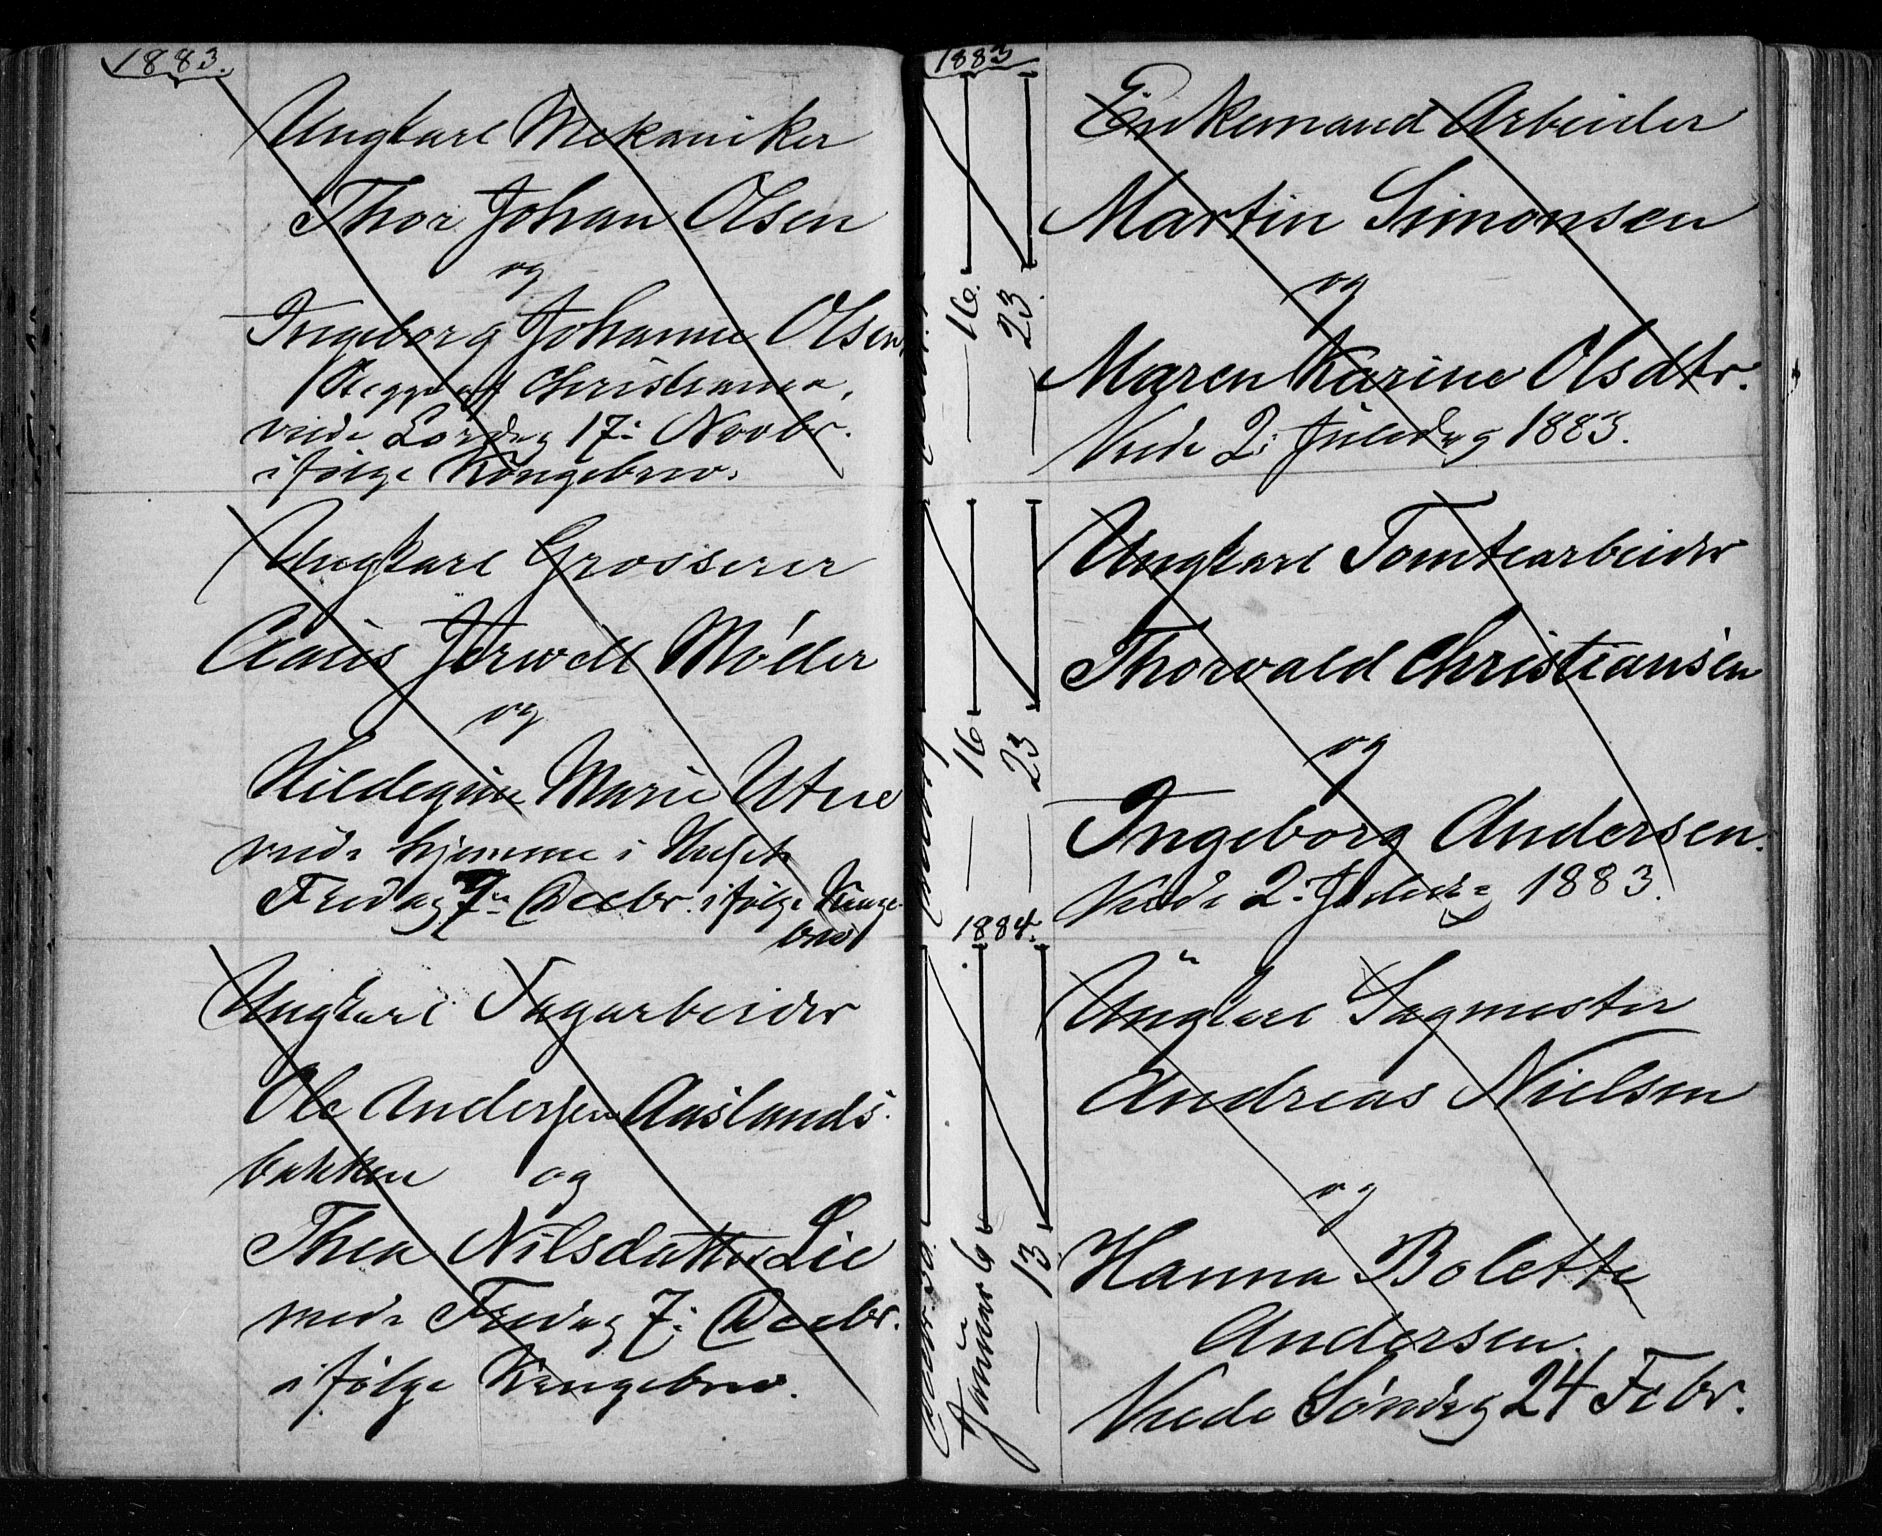 1883.
Ungkarl Mekaniker
Thor Johan Olsen
og
Ingeborg Johanne Olsen
Begge af Christiania,
viede Lørdag 17: Novbr.
ifølge Kongebrev.
Ungkarl Grosserer
Claus Møller
og
Marie Utne
viede hjemme i Huset
Fredag 7de Decbr. ifølge Konge-
brev
Ungkarl Sagarbeider
Ole Andersen Aaslands-
bakken og
Thea Nilsdatter Lie
viede Fredag 7: Decbr.
ifølge Kongebrev.
1883
16.
23.
Enkemand Arbeider
Martin Simonsen
og
Maren Karine Olsdtr.
Viede 2: Juledag 1883.
16
23
Ungkarl Tomtearbeider
Thorvald Christiansen
og
Ingeborg Andersen.
Viede 2: Juledag 1883.
1884.
Januar 6
13.
Ungkarl Sagmester
Andreas Nielsen
og
Hanna Bolette
Andersen.
Viede Søndag 24 Febr.